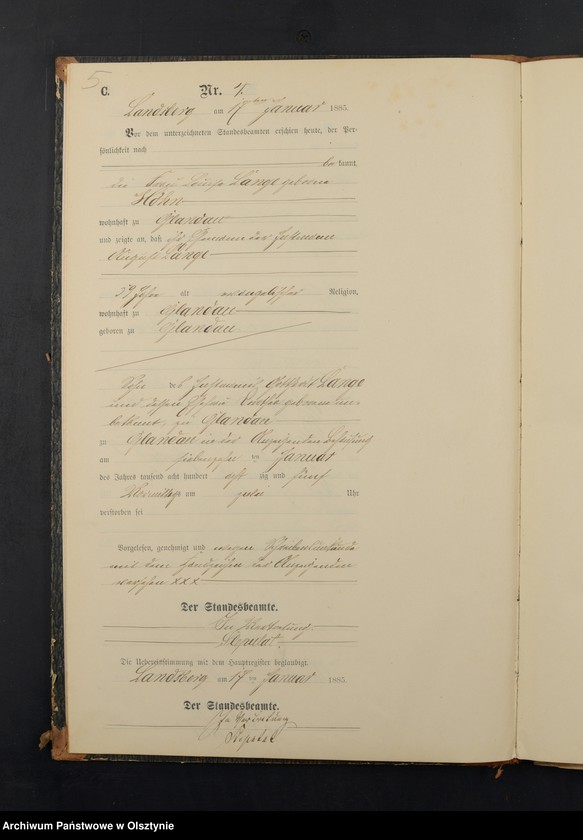 5
C.
Nr. 4.
Landsberg am 17 ten Januar 1885.
Vor dem unterzeichneten Standesbeamten erschien heute, der Per-
sönlichkeit nach
be kannt,
die Frau Louise Lange geborene
Höhn
wohnhaft zu Glandau
und zeigte an, daß der Ehemann der
August Lange
59 Jahr alt evangelischer Religion,
wohnhaft zu Glandau
geboren zu Glandau
Sohn des Gottfried Lange
und dessen Ehefrau Louise geborene un-
bekannt, zu Glandau
zu Glandau in der Behausung
am siebenzehn ten Januar
des Jahres tausend acht hundert acht zig und fünf
Vormittags um zwei Uhr
verstorben sei
Vorgelesen, genehmigt und wegen
mit dem Handzeichen des
versehen xxx
Der Standesbeamte.
In Vertretung
Die Uebereinstimmung mit dem Hauptregister beglaubigt
Landsberg am 17 ten Januar 1885.
Der Standesbeamte.
In Vertretung
Archiwum Państwowe w Olsztynie